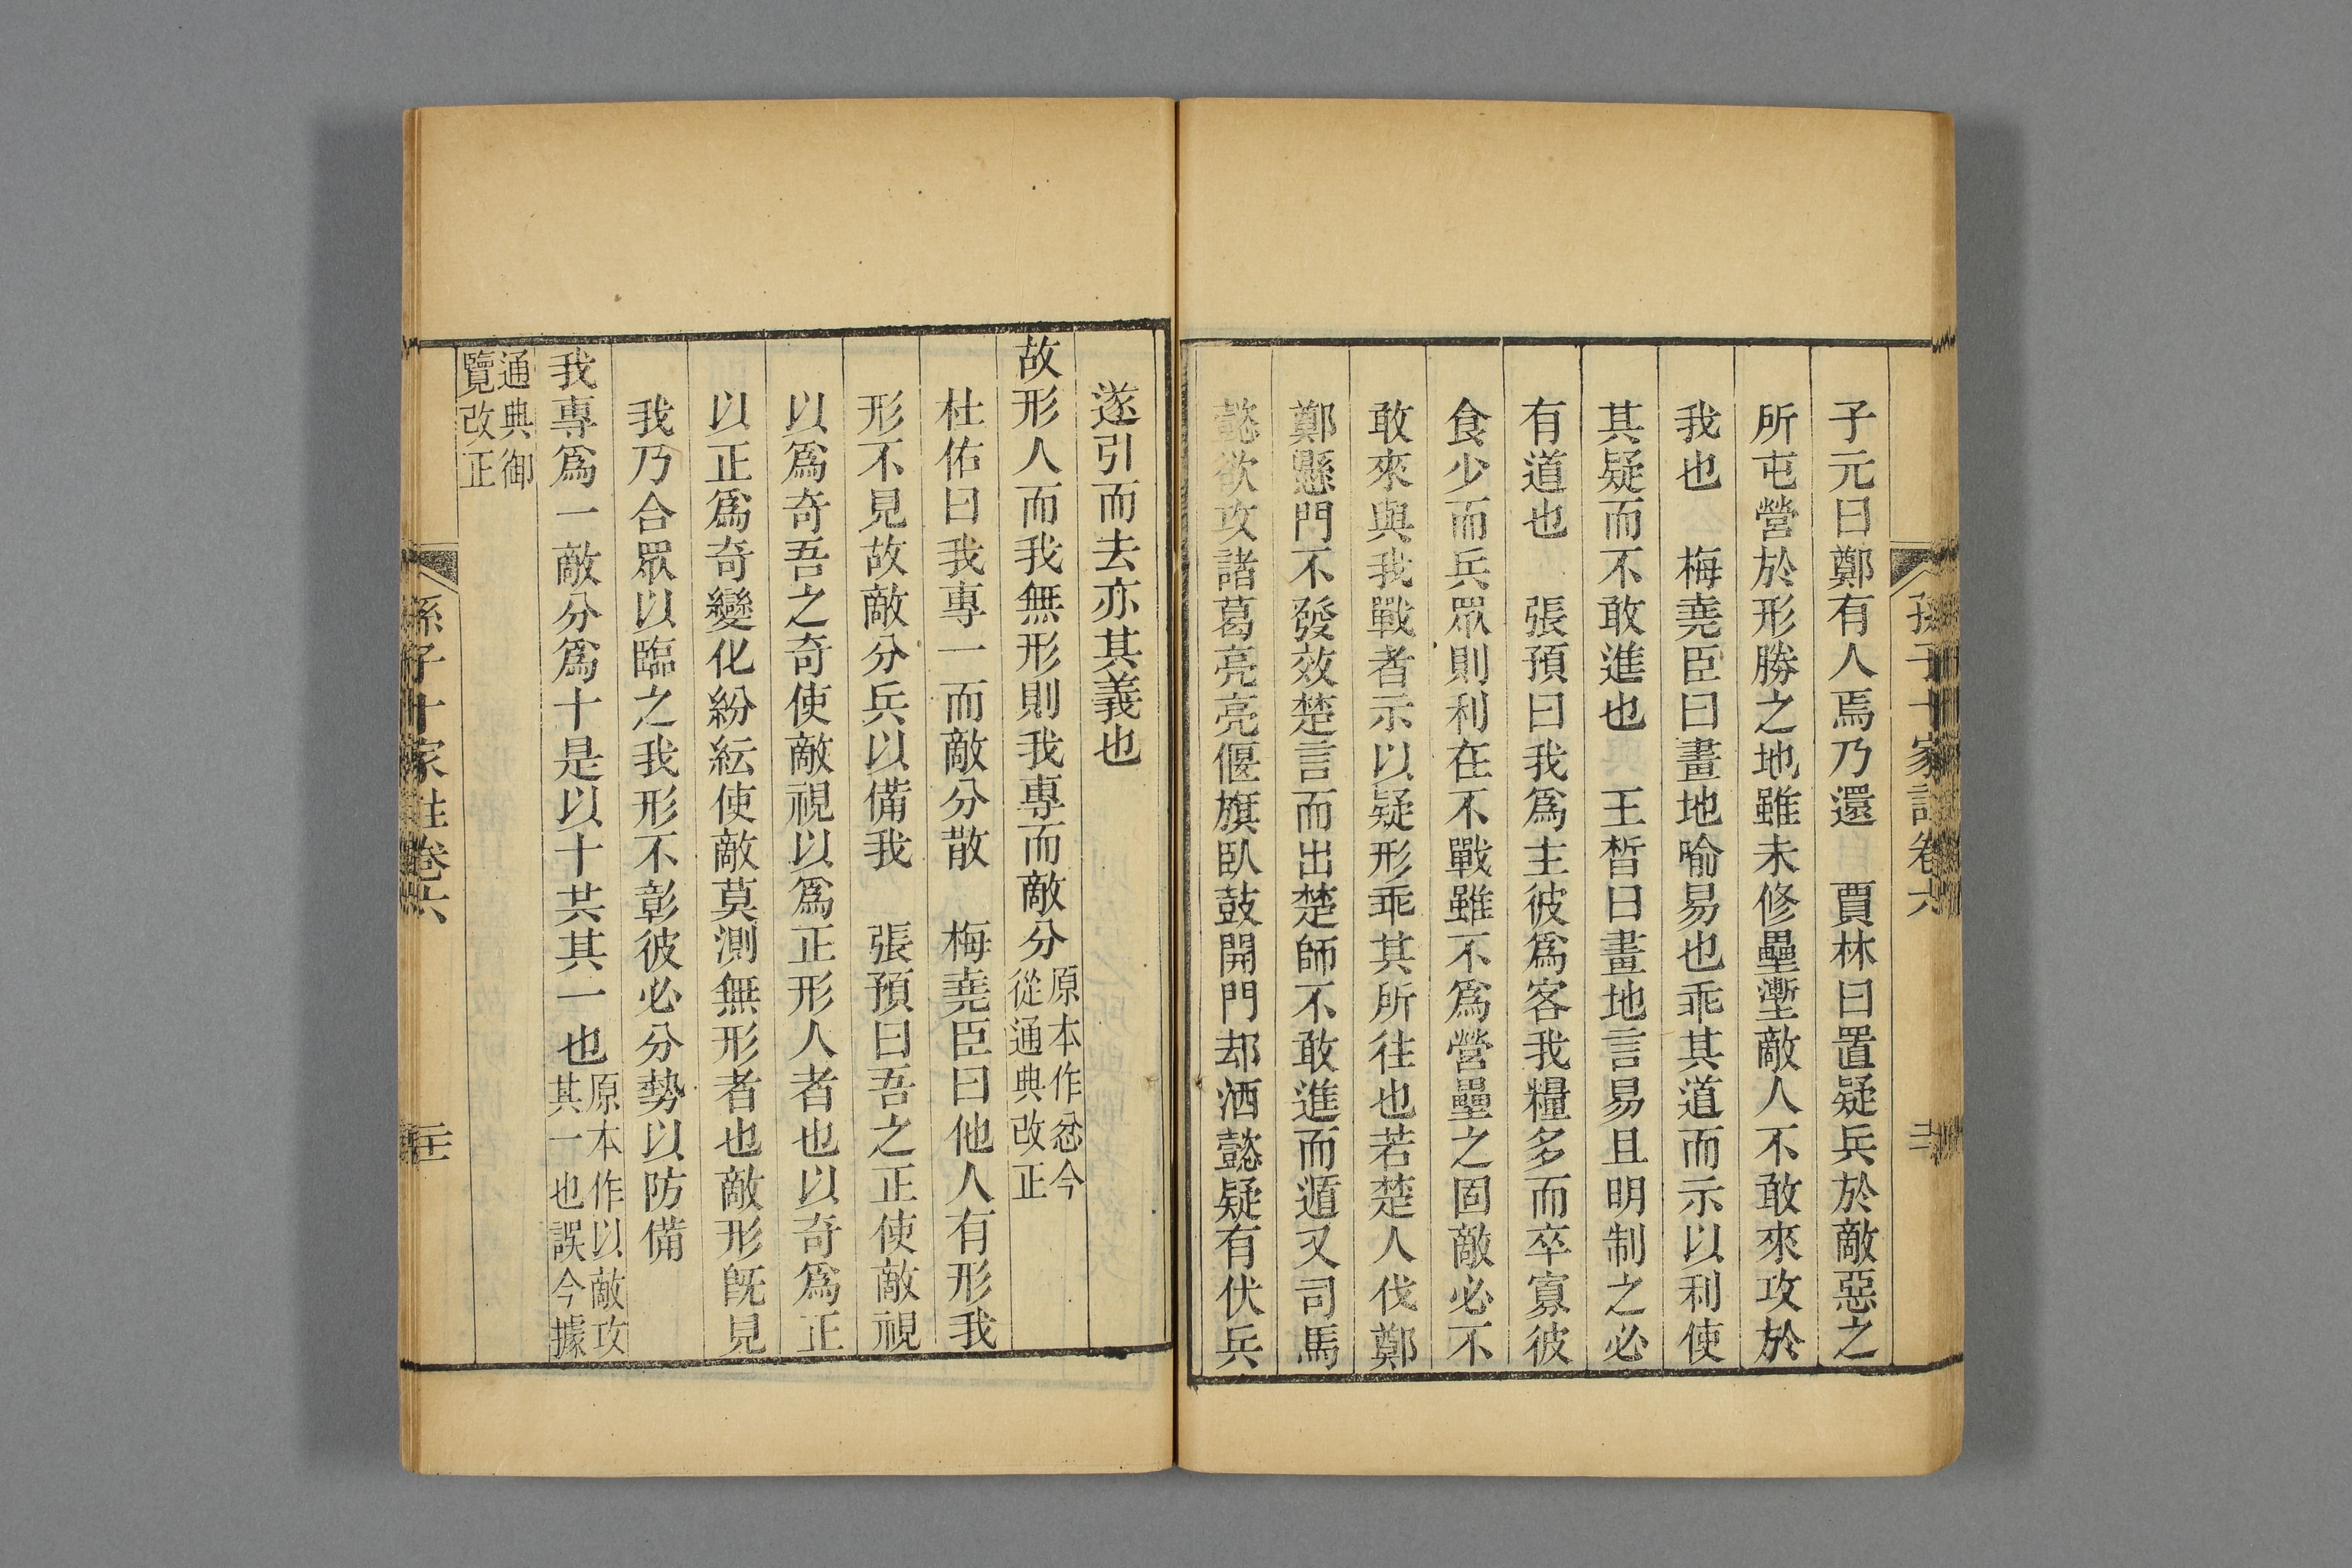 子元曰鄭有人焉乃還　賈林曰置疑兵於敵惡之
所屯營於形勝之地雖未修壘壍敵人不敢來攻於
我也　梅堯臣曰畫地喻易也乖其道而示以利使
其疑而不敢進也　王晳曰畫地言易且明制之必
有道也　張預曰我爲主彼爲客我糧多而卒寡彼
食少而兵眾則利在不戰雖不爲營壘之固敵必不
敢來與我戰者示以疑形乖其所往也若楚人伐鄭
鄭懸門不發效楚言而出楚師不敢進而遁又司馬
懿欲攻諸葛亮亮偃旗臥鼓開門却洒懿疑有伏兵
遂引而去亦其義也
故形人而我無形則我專而敵分原本作忿今從通典改正
杜佑曰我專一而敵分散　梅堯臣曰他人有形我
形不見故敵分兵以備我　張預曰吾之正使敵視
以爲奇吾之奇使敵視以爲正形人者也以奇爲正
以正爲奇變化紛紜使敵莫測無形者也敵形旣見
我乃合眾以臨之我形不彰彼必分勢以防備
我專爲一敵分爲十是以十共其一也原本作以敵攻其一也誤今據
通典御覽改正
孫子十家註卷六